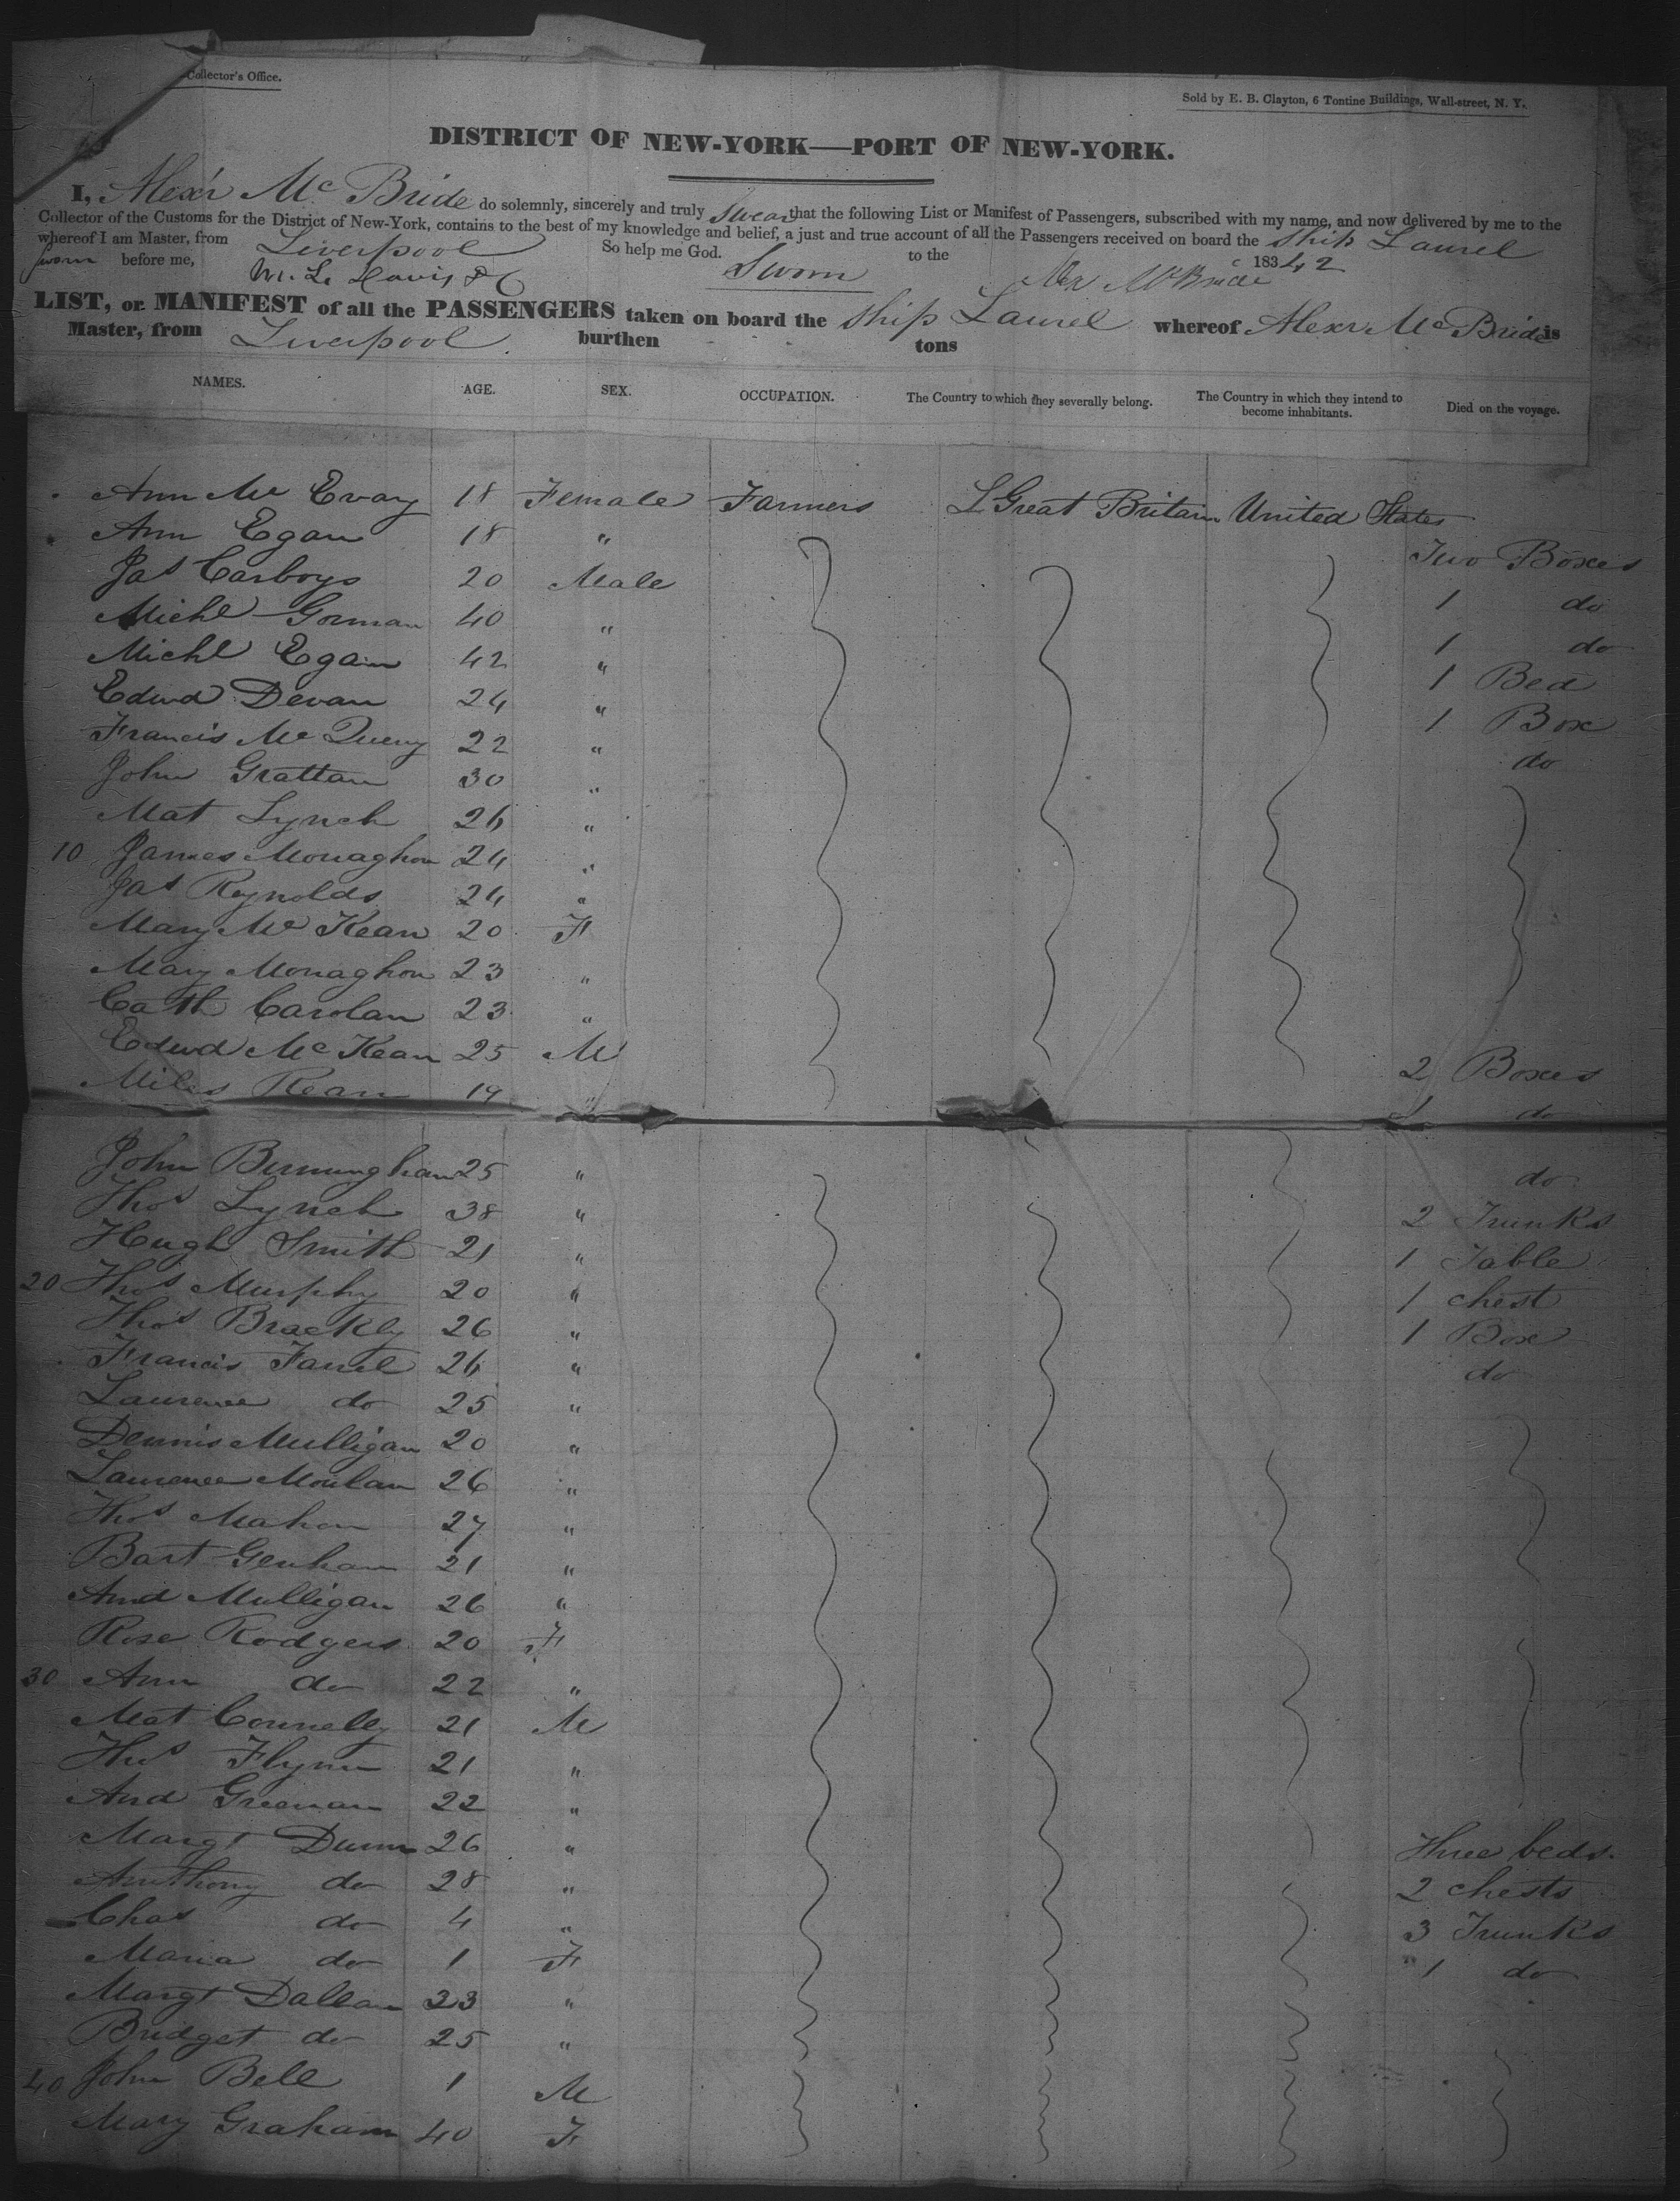 Collector's Office.
Sold by E. B. Clayton, 6 Tontine Buildings, Wall-street, N. Y.
DISTRICT OF NEW-YORK—PORT OF NEW-YORK.
I, Alexr Mc Bride do solemnly, sincerely and truly swear that the following List or Manifest of Passengers, subscribed with my name, and now delivered by me to the
Collector of the Customs for the District of New-York, contains to the best of my knowledge and belief, a just and true account of all the Passengers received on board the Ship Laurel
whereof I am Master, from Liverpool So help me God. to the 18342
Sworn before me, Sworn Alex McBride
LIST, or MANIFEST of all the PASSENGERS taken on board the Ship Laurel whereof Alexr Mc Bride is
Master, from Liverpool burthen tons
NAMES. AGE. SEX. OCCUPATION. The Country to which they severally belong. The Country in which they intend to become inhabitants. Died on the voyage.
Ann Mc Evay 18 Female Farmers Great Britain United States
Ann Egan 18 " Two Boxes
Jas Carboys 20 Male 1 do
Michl Gorman 40 " 1 do
Michl Egan 42 " 1 Bed
Edwd Devan 24 " 1 Box
Francis Mc Queny 22 " do
John Grattan 30 "
Mat Lynch 26 "
10 James Monaghon 24 "
Jas Reynolds 24 "
Mary Mc Kean 20 F
Mary Monaghon 23 "
Cath Carolan 23 "
Edwd Mc Kean 25 M 2 Boxes
Miles Kean 19 " 1 do
John Bermingham 25 " do
Thos Lynch 38 " 2 Trunks
Hugh Smith 21 " 1 Table
20 Thos Murphy 20 " 1 chest
Thos Brackly 26 " 1 Box
Francis Farrel 26 " do
Laurence do 25 "
Dennis Mulligan 20 "
Laurence Moulan 26 "
Thos Mahon 27 "
Bart Genham 21 "
And Mulligan 26 "
Rose Rodgers 20 F
30 Ann do 22 "
Mat Connelly 21 M
Thos Flynn 21 "
And Greenan 22 "
Margt Dunn 26 " Three beds.
Anthony do 28 " 2 chests
Chas do 4 " 3 Trunks
Maria do 1 F 1 do
Margt Dallan 23 "
Bridget do 25 "
40 John Bell 1 M
Mary Graham 40 F